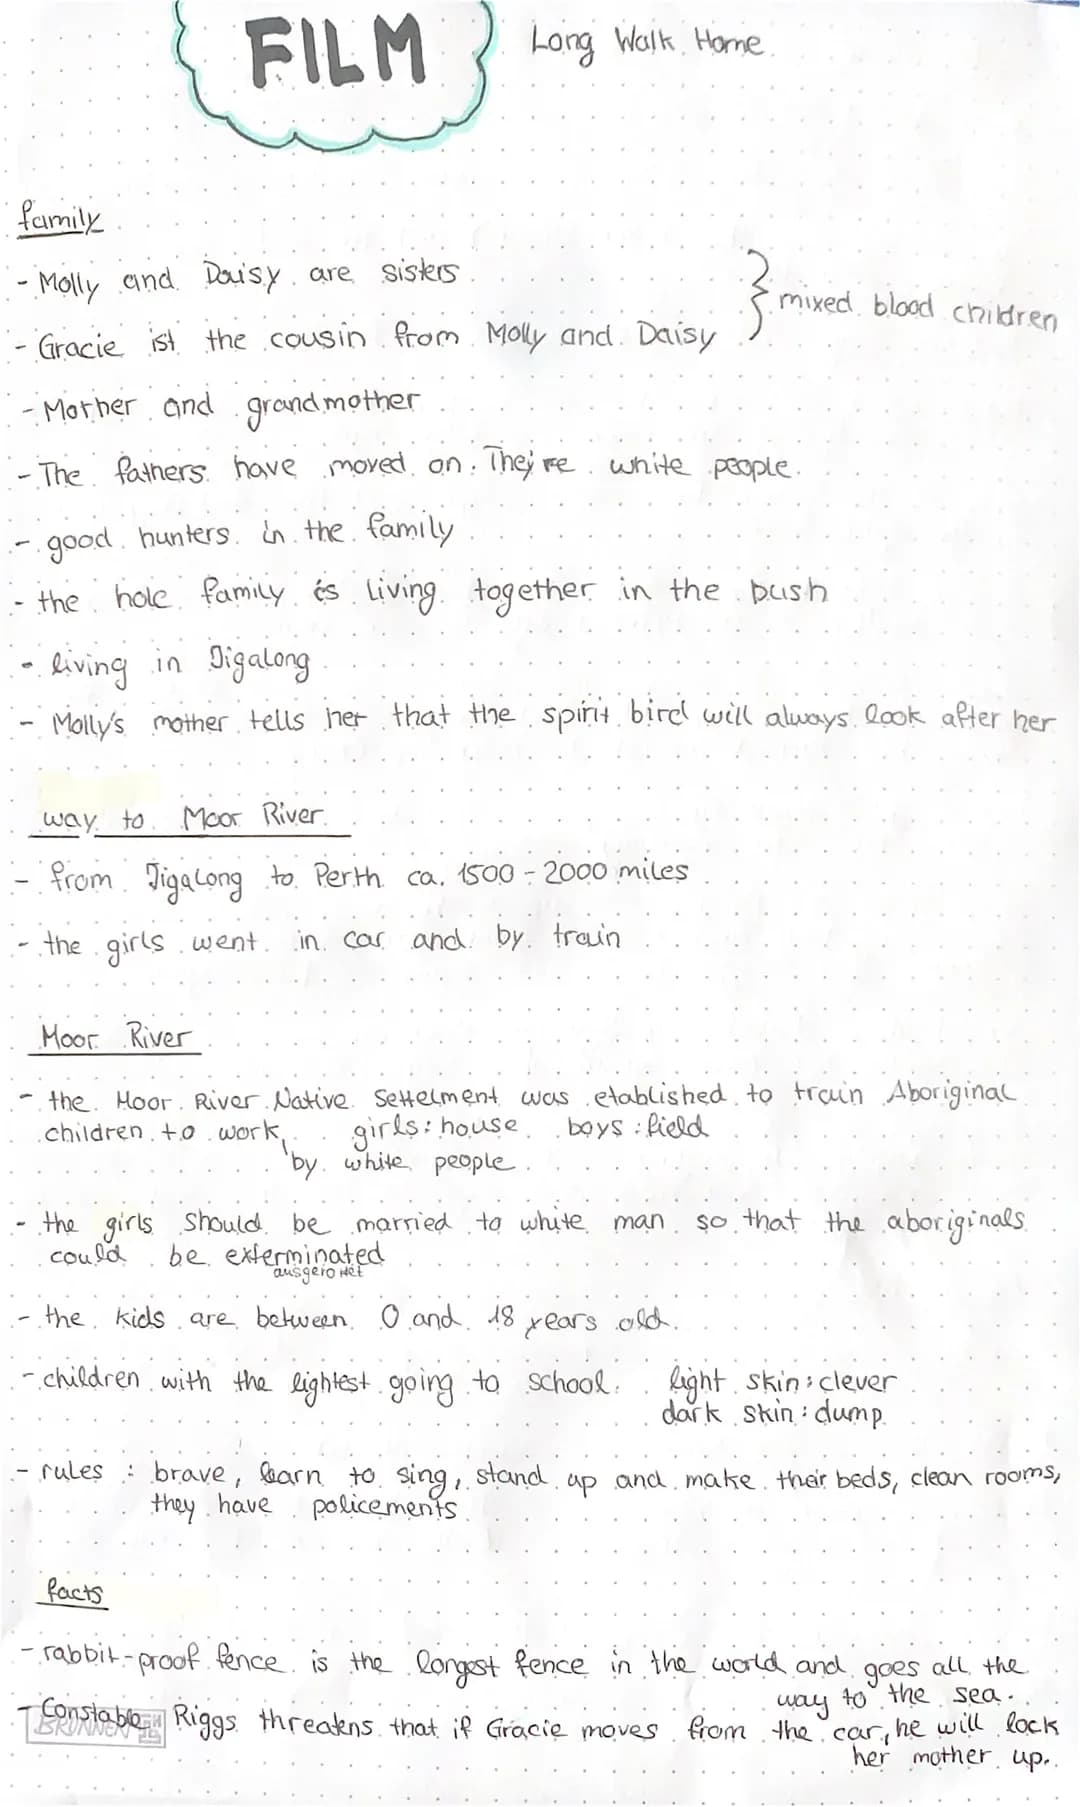 FILM Long Walk Home
family
- Molly and Daisy are sisters
- Gracie ist the cousin from Molly and Daisy } mixed blood children
- Mother and grandmother
- The fathers have moved on. They're white people.
- good hunters in the family
- the hole family is living together in the bush
- living in Jigalong
- Molly's mother tells her that the spirit bird will always look after her
way to Moor River
- from Jigalong to Perth ca. 1500 - 2000 miles
- the girls went in car and by train
Moor River
- the Moor River Native Settelment was etablished to train Aboriginal
children to work, girls: house boys: field
by white people
- the girls should be married to white man so that the aboriginals
could be exterminated
ausgerottet
- the kids are between 0 and 18 years old.
- children with the lightest going to school. light skin: clever
dark skin: dump
- rules: brave, learn to sing, stand up and make their beds, clean rooms,
they have policements
facts
- rabbit-proof fence is the longest fence in the world and goes all the
way to the sea.
- Constable Riggs threatens that if Gracie moves from the car, he will lock
her mother up.
BRUNNEN